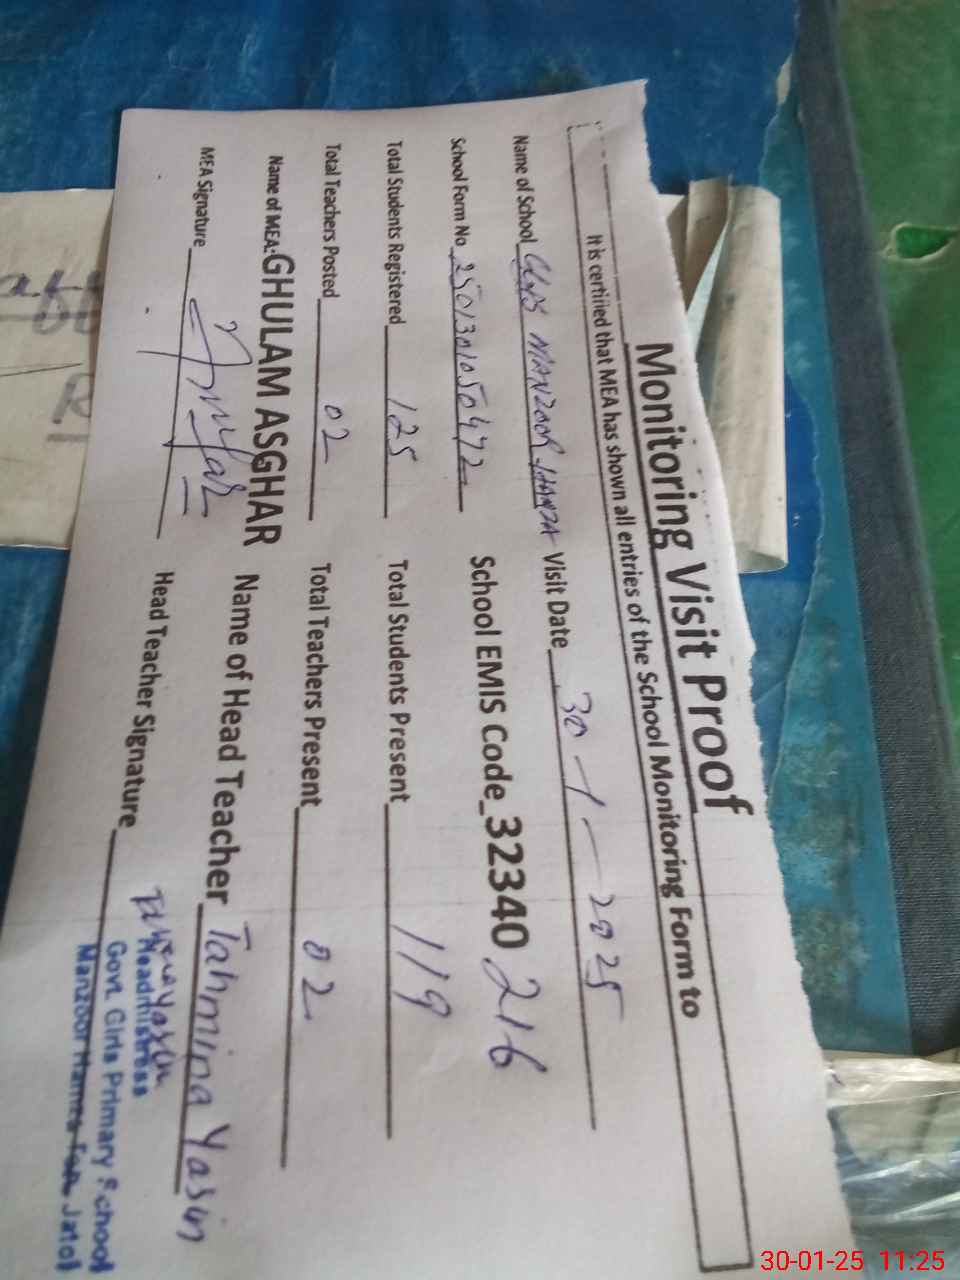 Monitoring Visit Proof
It is certified that MEA has shown all entries of the School Monitoring Form to
Name of School MANZOOR Visit Date 30-1-2025
School Form No 2501301050472 School EMIS Code_32340 216
Total Students Registered 125 Total Students Present 119
Total Teachers Posted 02 Total Teachers Present 02
Name of MEA: GHULAM ASGHAR Name of Head Teacher Tahmina Yasin
MEA Signature Head Teacher Signature
Headmistress
Govt. Girls Primary School
Manzoor Jatoi
30-01-25 11:25